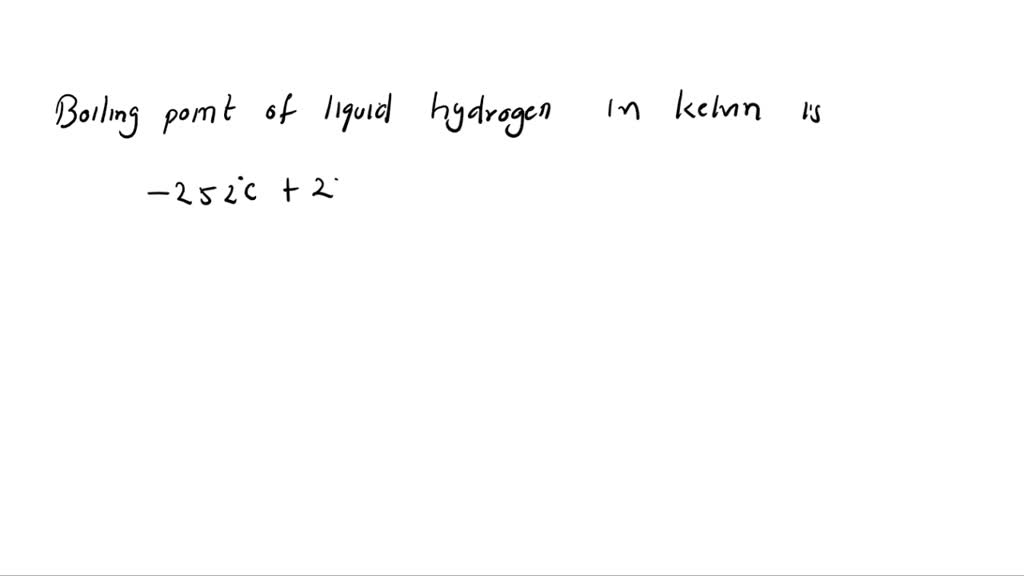 Boiling point of liquid hydrogen in kelvin is
-252°C + 2